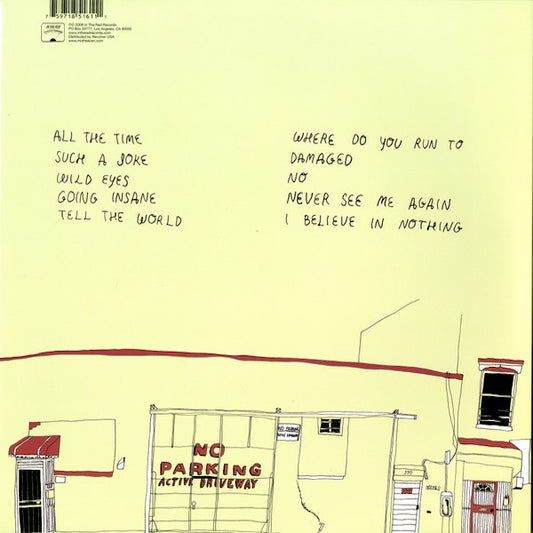 7 59718 51611 1
2008 In The Red Records
PO Box 50777, Los Angeles, CA 90050
www.intheredrecords.com
Distributed by Revolver USA
www.midheaven.com
ALL THE TIME
SUCH A JOKE
WILD EYES
GOING INSANE
TELL THE WORLD
WHERE DO YOU RUN TO
DAMAGED
NO
NEVER SEE ME AGAIN
I BELIEVE IN NOTHING
NO PARKING
NO
PARKING
ACTIVE DRIVEWAY